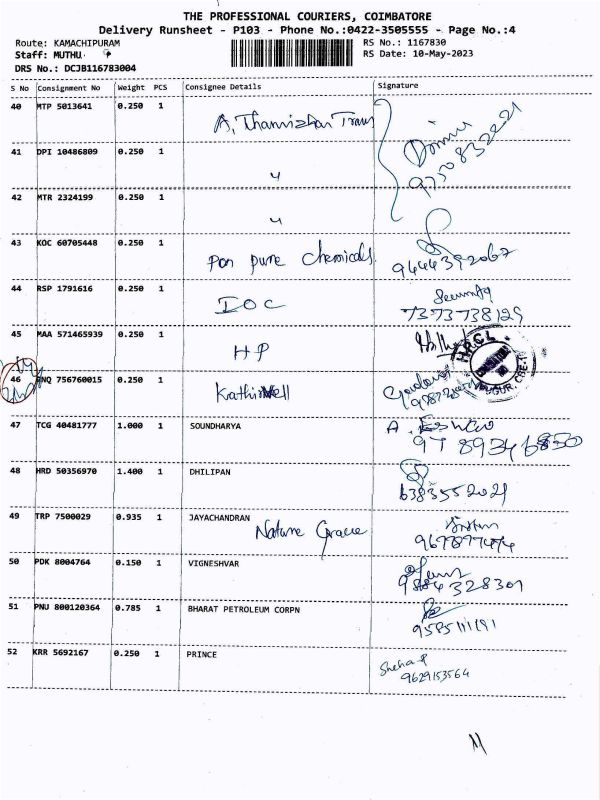 THE PROFESSIONAL COURIERS, COIMBATORE
Delivery Runsheet - P103 - Phone No.:0422-3505555 - Page No.:4
Route: KAMACHIPURAM RS No.: 1167830
Staff: MUTHU. RS Date: 10-May-2023
DRS No.: DCJB116783004
S No Consignment No Weight PCS Consignee Details Signature
40 MTP 5013641 0.250 1
A, Thamizhan Trans
41 DPI 10486809 0.250 1
"
42 MTR 2324199 0.250 1
"
43 KOC 60705448 0.250 1
Pon pure Chemicals
9444392067
44 RSP 1791616 0.250 1
IOC
7373738129
45 MAA 571465939 0.250 1
HP
H.P.C.L.
46 PNQ 756760015 0.250 1
Kathirvell
47 TCG 40481777 1.000 1 SOUNDHARYA
48 HRD 50356970 1.400 1 DHILIPAN
6383552021
49 TRP 7500029 0.935 1 JAYACHANDRAN
Nature Grace
50 PDK 8004764 0.150 1 VIGNESHVAR
51 PNU 800120364 0.785 1 BHARAT PETROLEUM CORPN
52 KRR 5692167 0.250 1 PRINCE
Sneha P
9629153564